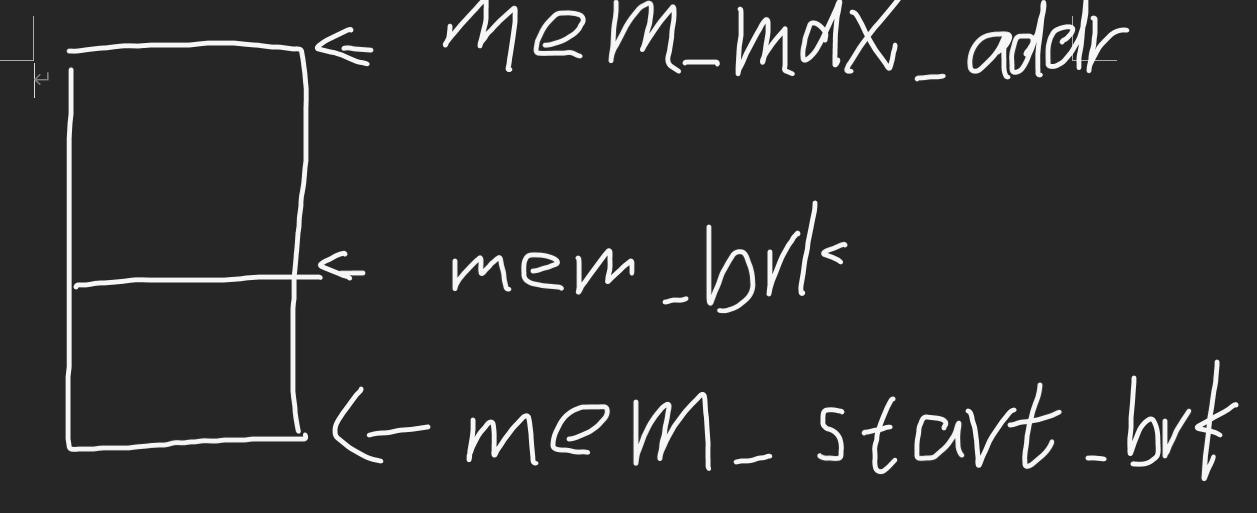 mem_max_addr
mem_brk
mem_start_brk